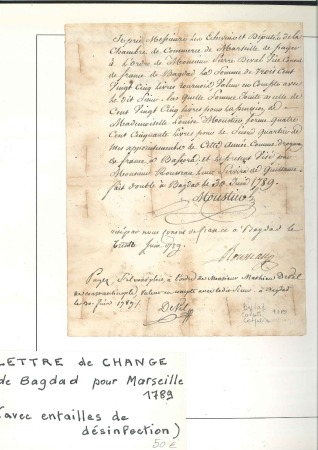 Je prie Messieurs les Echevins et Députés de la
Chambre de Commerce de Marseille de payer
à L'ordre de Monsieur Pierre Deval Vice Consul
de france de Bagdad la Somme de Trois Cent
Vingt Cinq Livres tournois Valeur en Compte avec
le dit Sieur. Laquelle Somme jointe à celle de
Cent Vingt Cinq Livres pour la pension de
Mademoiselle Louise Moustier forme quatre
Cent Cinquante Livres pour le Second Quartier de
mes appointements de Cette Année Comme
france à Bassora, et le présent Visé par
Monsieur Rousseau
fait double à Bagdad le 30 Juin 1789.
Moustier
visé par nous Consul de france à Bagdad le
Juin 1789.
Rousseau
Payez, S'il vous plait, à l'ordre de Monsieur Mathieu Deval
en constantinople, valeur en compte avec ledit Sieur. à Bagdad
le 30 Juin 1789.
Deval
LETTRE de CHANGE
de Bagdad pour Marseille
1789
(avec entailles de
désinfection)
50 €